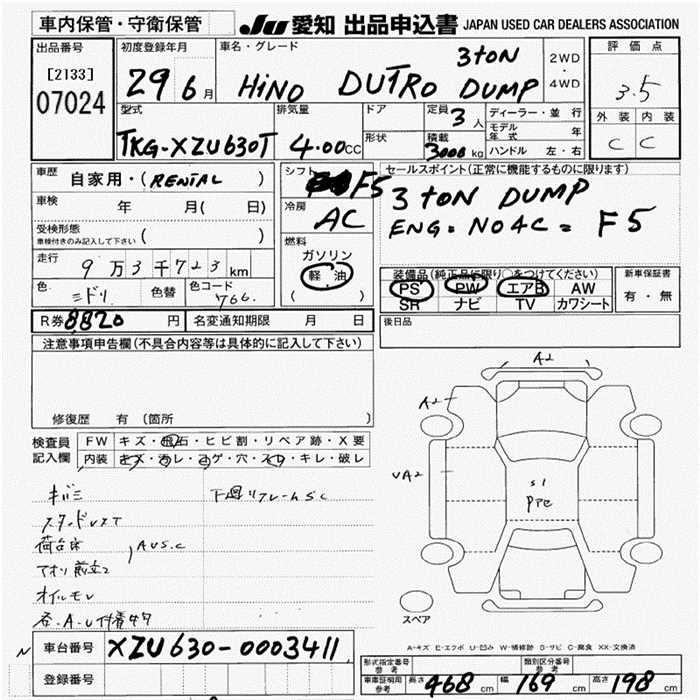 車内保管・守衛保管
JU 愛知 出品申込書 JAPAN USED CAR DEALERS ASSOCIATION
出品番号
[2133]
07024
初度登録年月
29 6 月
車名・グレード
3tON
HiNO DUTRO DUMP
2WD
・
4WD
評価点
3.5
外装 内装
C C
型式
TKG-XZU630T
排気量
4.00 CC
ドア
形状
定員 3 人
積載 3000 kg
ディーラー・並行
モデル年式 年
ハンドル 左・右
車歴 自家用・(RENTAL )
車検 年 月( 日)
受検形態
車検付きのみ記入して下さい ( )
走行 9万3千723km
色 ミドリ 色替 色コード 766.
R券 8820 円 名変通知期限 月 日
シフト F5
冷房 AC
燃料
ガソリン
軽油
( )
セールスポイント(正常に機能するものに限ります)
3 tON DUMP
ENG=NO4C= F5
装備品(純正品に限り○をつけてください)
PS PW エアB AW
SR ナビ TV カワシート
新車保証書
有・無
後日品
注意事項申告欄(不具合内容等は具体的に記入して下さい)
修復歴 有(箇所 )
検査員記入欄
FW キズ・飛石・ヒビ割・リペア跡・X要
内装 キズ・汚レ・コゲ・穴・スレ・キレ・破レ
キバミ
下廻リフレームS C
荷台床
A U S.C
アオリ
オイルモレ
A2
A2
UA2
S1
スペア
A-キズ E-エクボ U-凹み W-補修跡 S-サビ C-腐食 XX-交換済
N
車台番号 XZU630-0003411
登録番号
形式指定番号 参考
類別区分番号 参考
車庫証明用 参考 長さ 468 cm 幅 169 cm 高さ 198 cm